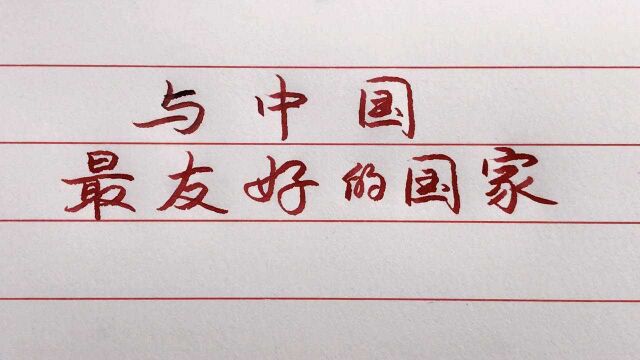 与中国
最友好的国家